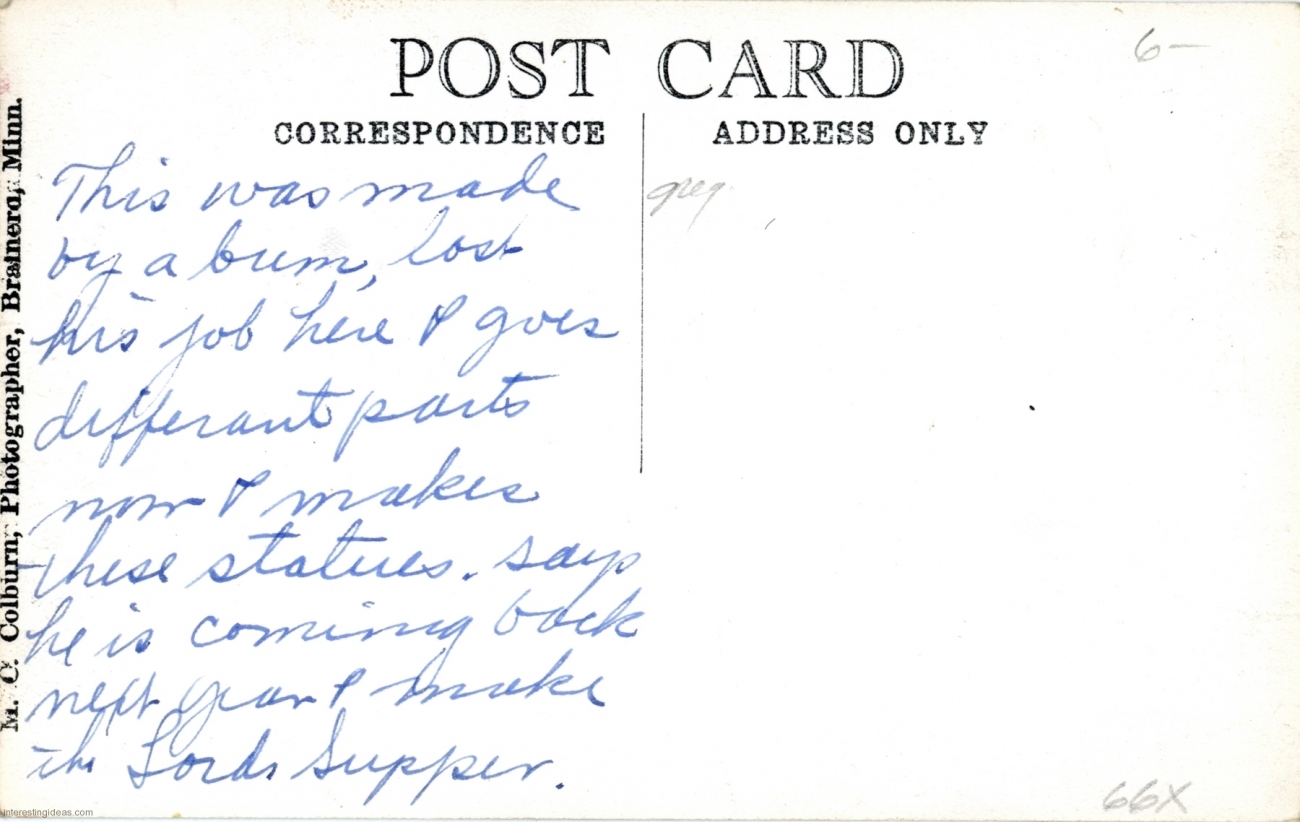 POST CARD
6-
CORRESPONDENCE
ADDRESS ONLY
This was made
by a bum, lost
his job here & goes
differant parts
now & makes
these statues. says
he is coming back
next year & make
the Lords Supper.
greg
M. C. Colburn, Photographer, Brainerd, Minn.
66X
interestingideas.com